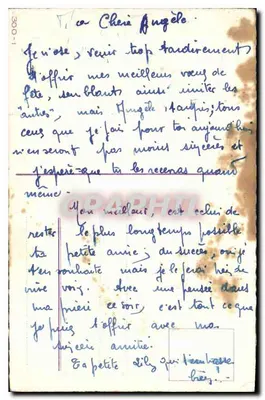 Ta Chère Angèle
Je n'ose, venir trop tardivement
t'offrir mes meilleurs vœux de
fête, semblant ainsi imiter les
"autres", mais Angèle, tant pis; tous
ceux que je fais pour toi aujourd'hui
n'en seront pas moins sincères et
j'espère que tu les recevras quand
même.
Mon meilleur, est celui de
rester le plus longtemps possible
ta petite amie; du succès, oui je
t'en souhaite mais je le ferai de
vive voix. Avec une pensée dans
ma prière ce soir, c'est tout ce que
je puis t'offrir avec ma
sincère amitié.
Ta petite Lily qui t'embrasse
bien.